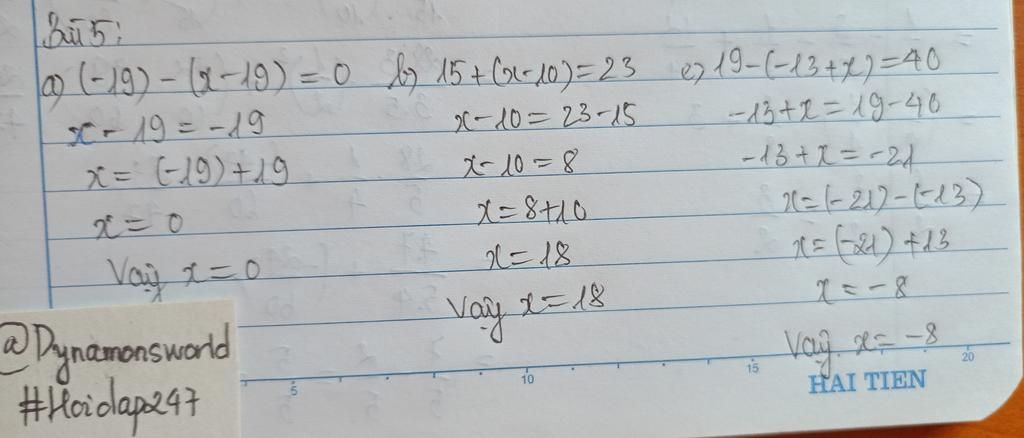 Bài 5:
a) (-19) - (x - 19) = 0
x - 19 = -19
x = (-19) + 19
x = 0
Vậy x = 0
b) 15 + (x - 10) = 23
x - 10 = 23 - 15
x - 10 = 8
x = 8 + 10
x = 18
Vậy x = 18
c) 19 - (-13 + x) = 40
-13 + x = 19 - 40
-13 + x = -21
x = (-21) - (-13)
x = (-21) + 13
x = -8
Vậy x = -8
@Dynamonsworld
#Hoidap247
5 10 15 20
HAI TIEN